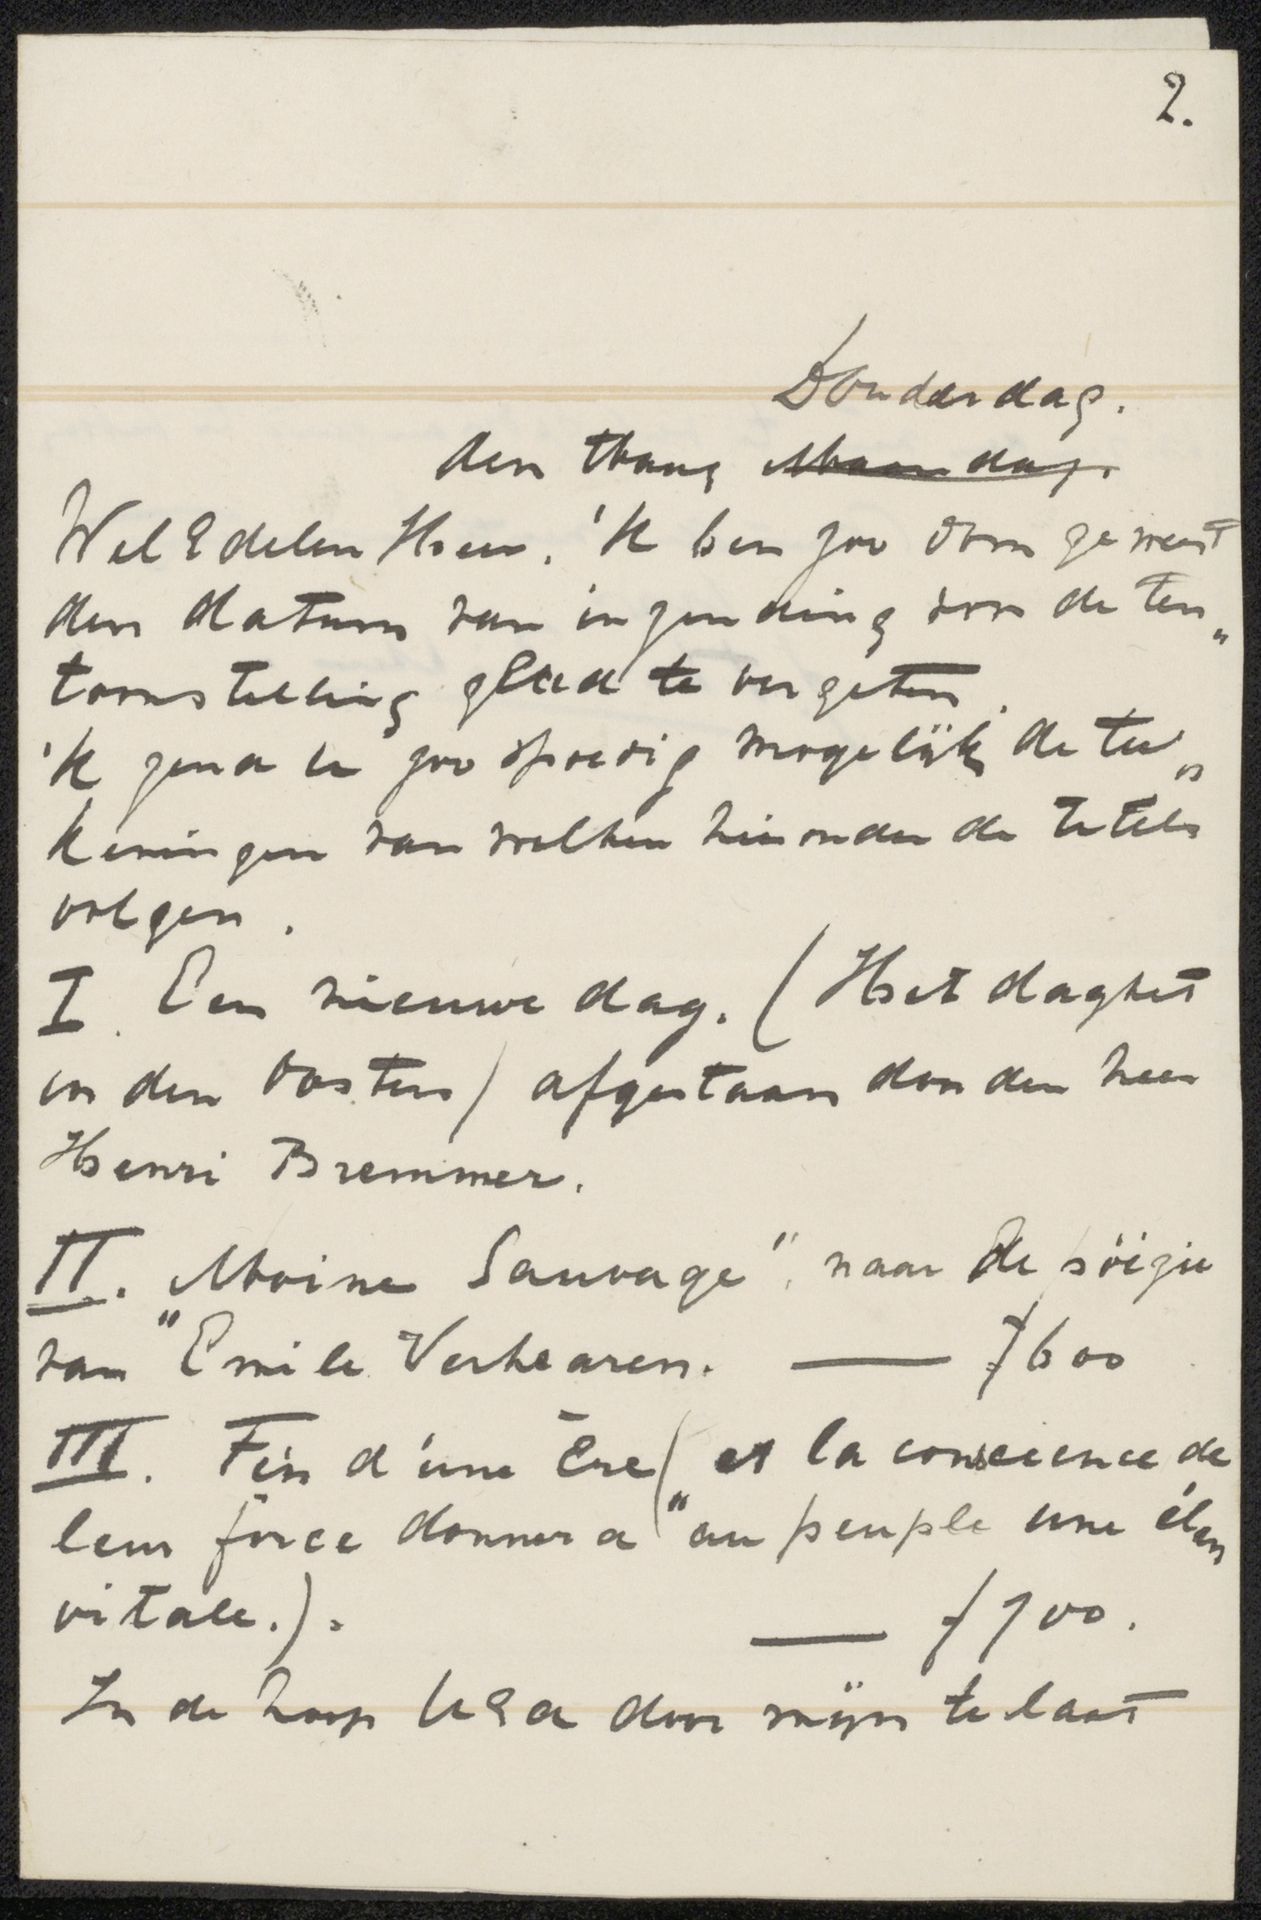 2.
Donderdag.
den Haag Maandag.
WelEdelen Heer. 'k ben zoo dom geweest
den datum van inzending voor de ten„
toonstelling glad te vergeten.
'k zend U zoo spoedig mogelijk de tee„
keningen van welken hieronder de titels
volgen.
I. Een nieuwe dag. (Het daghet
in den Oosten) afgestaan door den heer
Henri Bremmer.
II. Moine Sauvage" naar de poëzie
van "Emile Verhearen. — ƒ600
III. Fin d'une Ere (et la conscience de
leur force donnera "au peuple une élan
vitale.). — ƒ700.
In de hoop UEd door mijn te laat